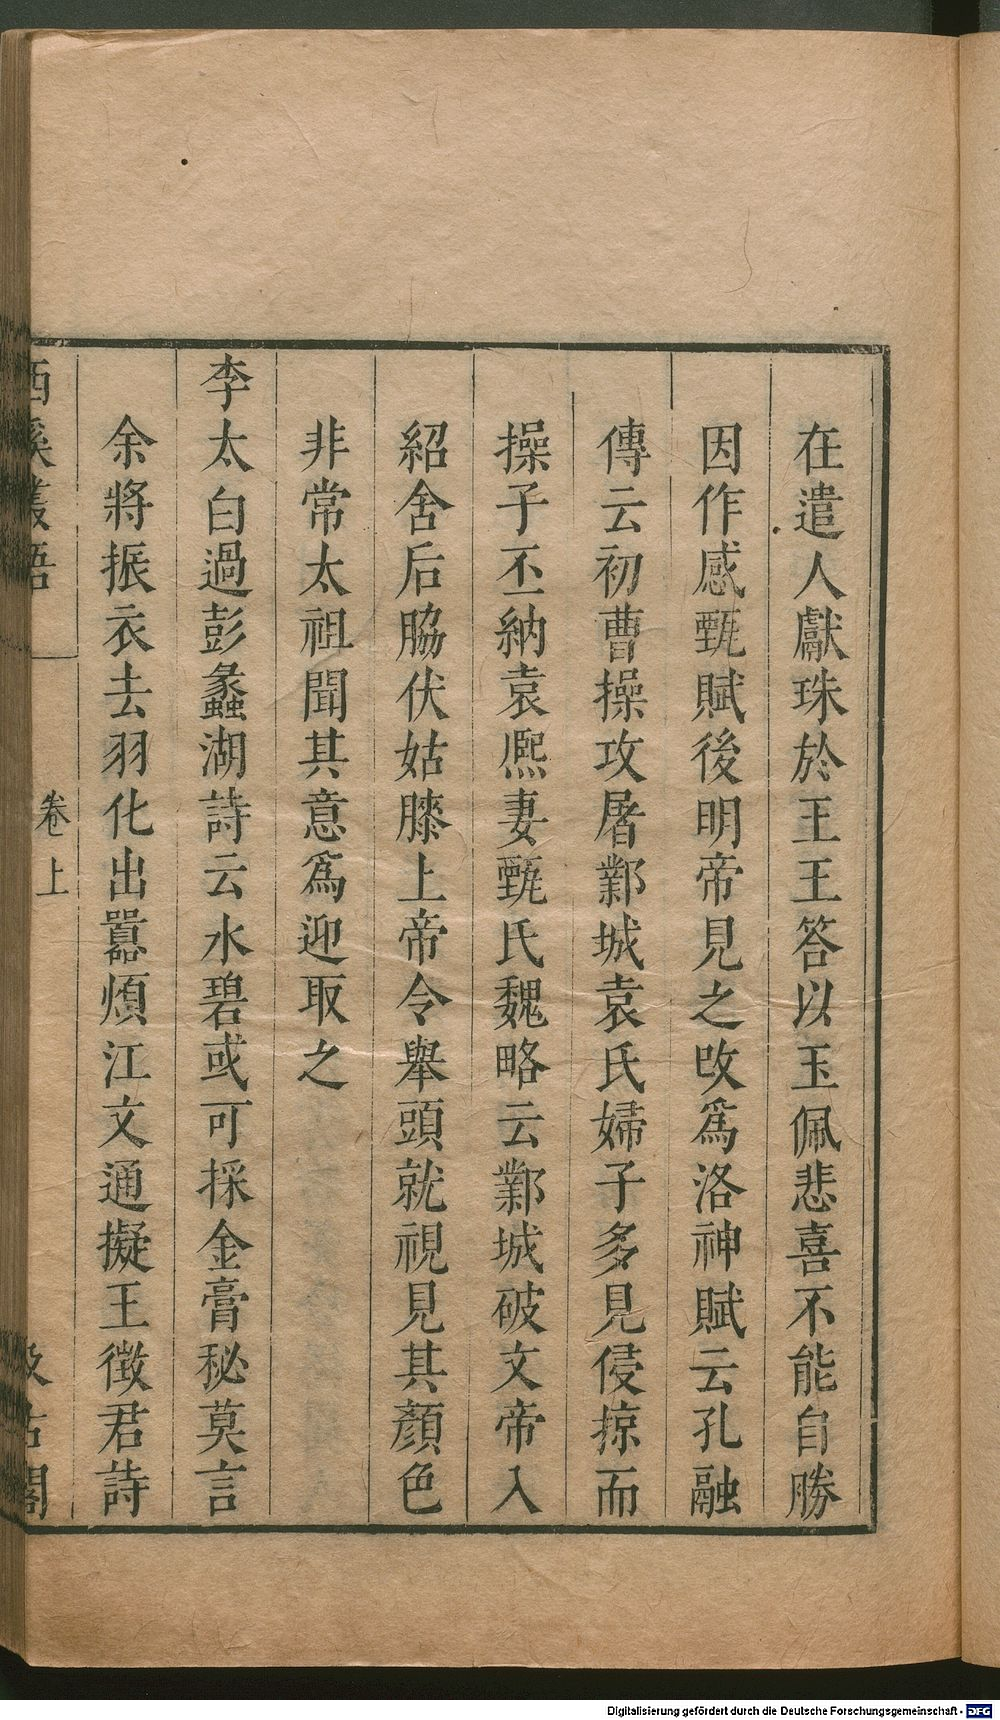 在遣人獻珠於王王答以玉佩悲喜不能自勝
因作感甄賦後明帝見之改爲洛神賦云孔融
傳云初曹操攻屠鄴城袁氏婦子多見侵掠而
操子丕納袁熈妻甄氏魏略云鄴城破文帝入
紹舍后脇伏姑膝上帝令舉頭就視見其顏色
非常太祖聞其意爲迎取之
李太白過彭蠡湖詩云水碧或可採金膏秘莫言
余將振衣去羽化出囂煩江文通擬王徵君詩
西溪叢語
卷上
汲古閣
Digitalisierung gefördert durch die Deutsche Forschungsgemeinschaft - DFG